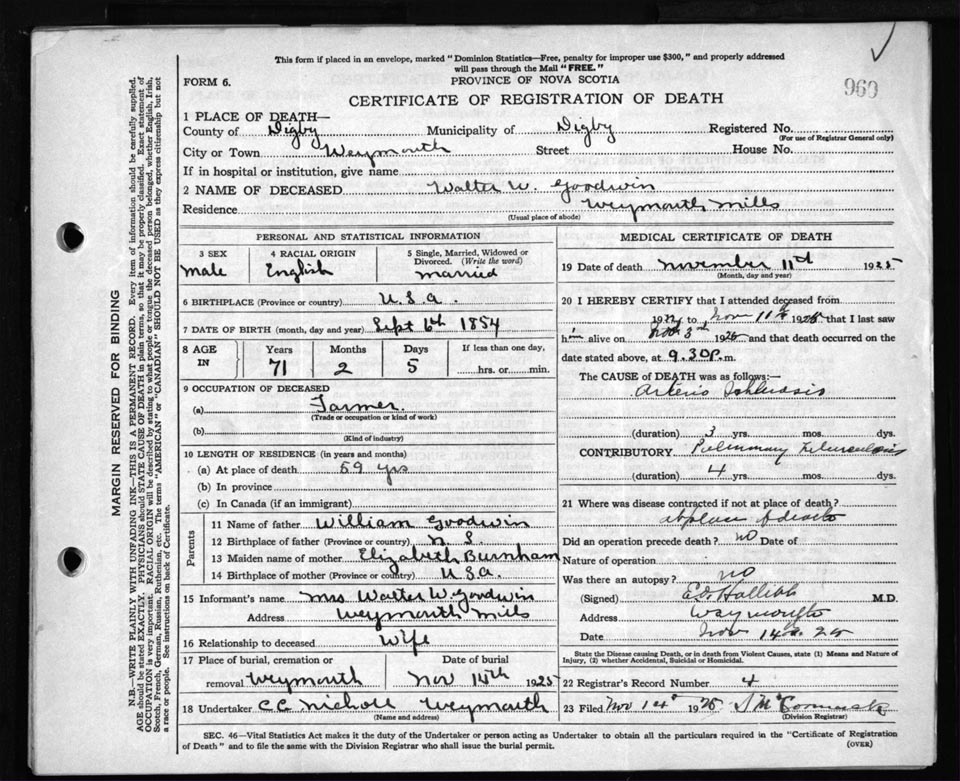 This form if placed in an envelope, marked "Dominion Statistics—Free, penalty for improper use $300," and properly addressed
will pass through the Mail "FREE."
FORM 6.
PROVINCE OF NOVA SCOTIA
960
CERTIFICATE OF REGISTRATION OF DEATH
1 PLACE OF DEATH—
County of Digby Municipality of Digby Registered No.
(For use of Registrar General only)
City or Town Weymouth Street House No.
If in hospital or institution, give name
2 NAME OF DECEASED Walter W. Goodwin
Residence Weymouth Mills
(Usual place of abode)
PERSONAL AND STATISTICAL INFORMATION
3 SEX 4 RACIAL ORIGIN 5 Single, Married, Widowed or
Divorced. (Write the word)
Male English Married
6 BIRTHPLACE (Province or country) U.S.A.
7 DATE OF BIRTH (month, day and year) Sept 6th 1854
8 AGE IN Years Months Days If less than one day,
71 2 5 hrs. or min.
9 OCCUPATION OF DECEASED
(a) Farmer
(Trade or occupation or kind of work)
(b)
(Kind of industry)
10 LENGTH OF RESIDENCE (in years and months)
(a) At place of death 59 yrs
(b) In province
(c) In Canada (if an immigrant)
Parents
11 Name of father William Goodwin
12 Birthplace of father (Province or country) N.S.
13 Maiden name of mother Elizabeth Burnham
14 Birthplace of mother (Province or country) U.S.A.
15 Informant's name Mrs Walter W. Goodwin
Address Weymouth Mills
16 Relationship to deceased Wife
17 Place of burial, cremation or Date of burial
removal Weymouth Nov 14th 1925
18 Undertaker C C Nichols Weymouth
(Name and address)
MEDICAL CERTIFICATE OF DEATH
19 Date of death November 11th 1925
(Month, day and year)
20 I HEREBY CERTIFY that I attended deceased from
19 to Nov 11th 1925 that I last saw
him alive on Nov 3rd 1925 and that death occurred on the
date stated above, at 9.30 P. m.
The CAUSE OF DEATH was as follows:—
Arterio
(duration) 3 yrs. mos. dys.
CONTRIBUTORY Pulmonary Tuberculosis
(duration) 4 yrs. mos. dys.
21 Where was disease contracted if not at place of death?
at place of death
Did an operation precede death? no Date of
Nature of operation
Was there an autopsy? no
(Signed) M.D.
Address Weymouth
Date Nov 14th 25
State the Disease causing Death, or in death from Violent Causes, state (1) Means and Nature of
Injury, (2) whether Accidental, Suicidal or Homicidal.
22 Registrar's Record Number 4
23 Filed Nov 1925
(Division Registrar)
SEC. 46—Vital Statistics Act makes it the duty of the Undertaker or person acting as Undertaker to obtain all the particulars required in the "Certificate of Registration
of Death" and to file the same with the Division Registrar who shall issue the burial permit.
(OVER)
MARGIN RESERVED FOR BINDING
N.B.—WRITE PLAINLY WITH UNFADING INK—THIS IS A PERMANENT RECORD. Every item of information should be carefully supplied.
AGE should be stated EXACTLY. PHYSICIANS should STATE CAUSE OF DEATH in plain terms, so that it may be properly classified. Exact statement of
OCCUPATION is very important. RACIAL ORIGIN will be described by stating to what people or tongue the deceased person belonged, whether English, Irish,
Scotch, French, German, Russian, Ruthenian, etc. The terms "AMERICAN" or "CANADIAN" SHOULD NOT BE USED as they express citizenship but not
a race or people. See instructions on back of Certificate.